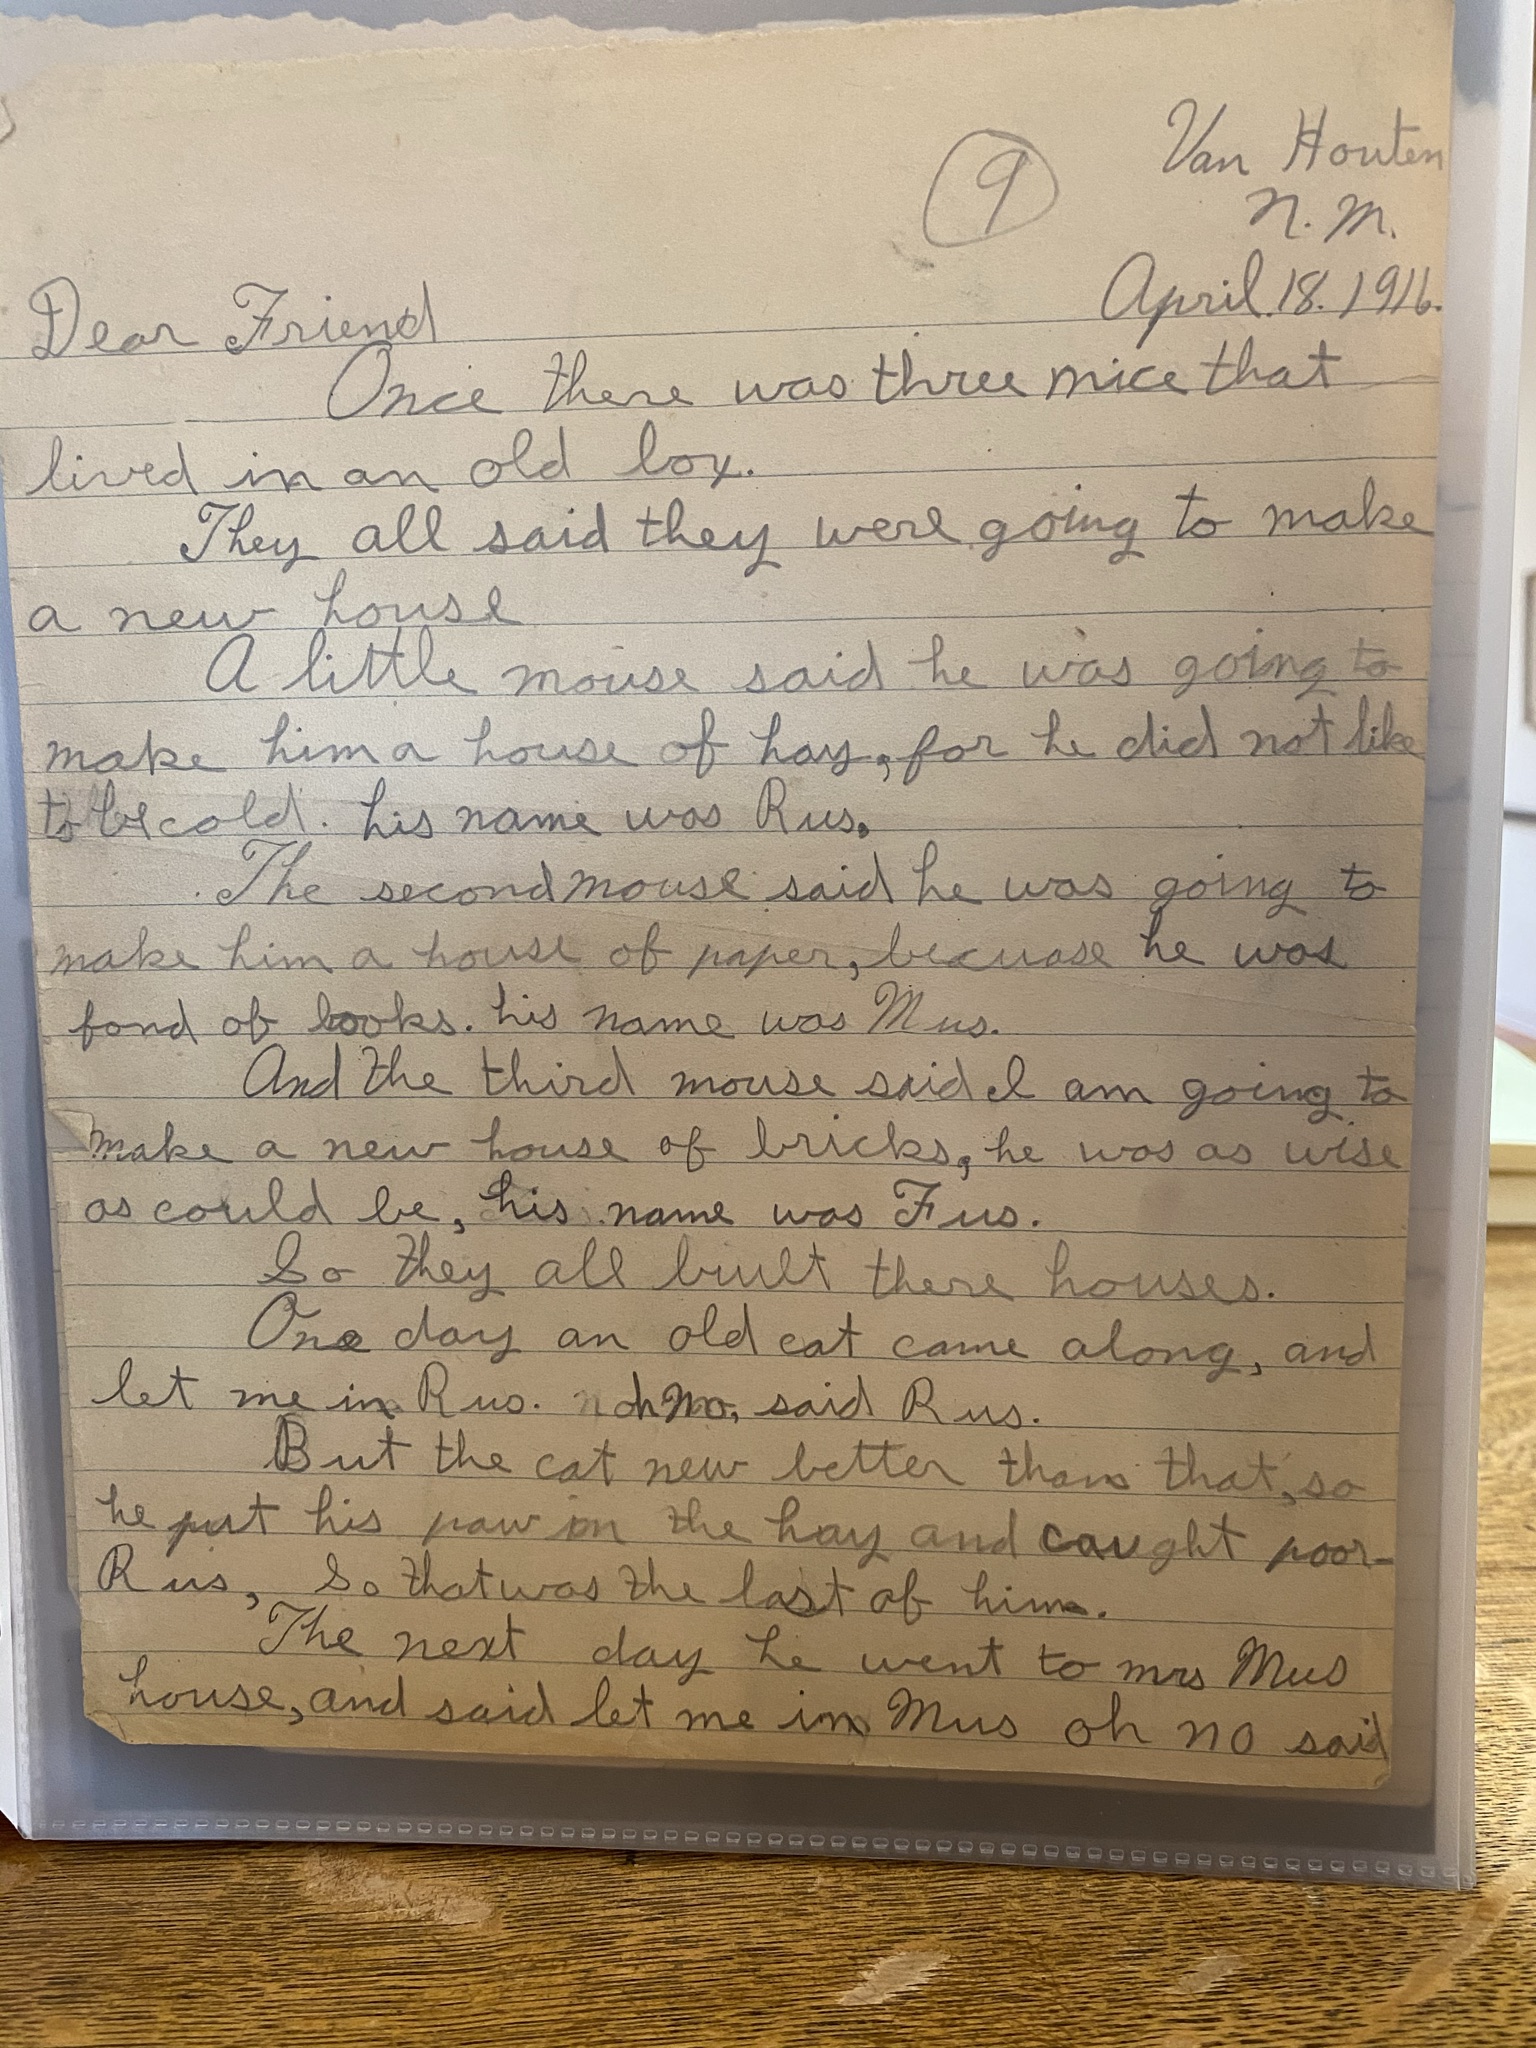 9
Van Houten
N. M.
April. 18. 1916.
Dear Friend
Once there was three mice that
lived in an old box.
They all said they were going to make
a new house
A little mouse said he was going to
make him a house of hay, for he did not like
to be cold. his name was Rus.
The second mouse said he was going to
make him a house of paper, becuase he was
fond of books. his name was Mus.
And the third mouse said I am going to
make a new house of bricks, he was as wise
as could be, his name was Fus.
So they all built there houses.
One day an old cat came along, and
let me in Rus. oh no, said Rus.
But the cat new better than that, so
he put his paw in the hay and caught poor
Rus, So that was the last of him.
The next day he went to mrs Mus
house, and said let me in Mus oh no said